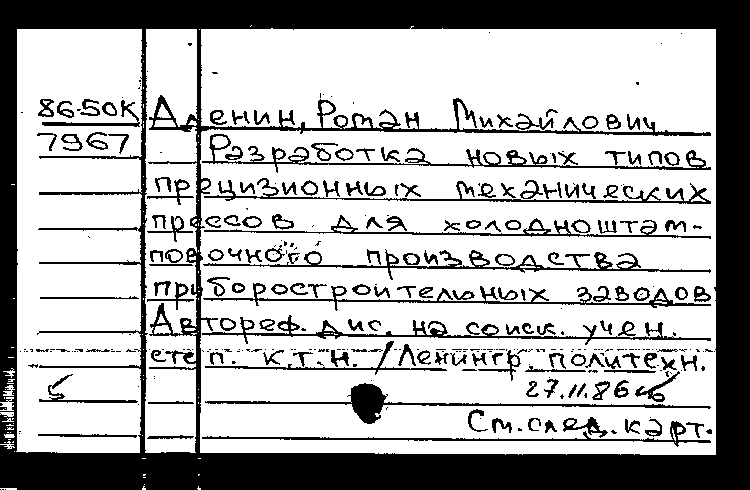 86-50К Аленин, Роман Михайлович
7967 Разработка новых типов
прецизионных механических
прессов для холодноштам-
повочного производства
приборостроительных заводов
Автореф. дис. на соиск. учен.
степ. к.т.н. / Ленингр. политехн.
27.11.86
См. след. карт.